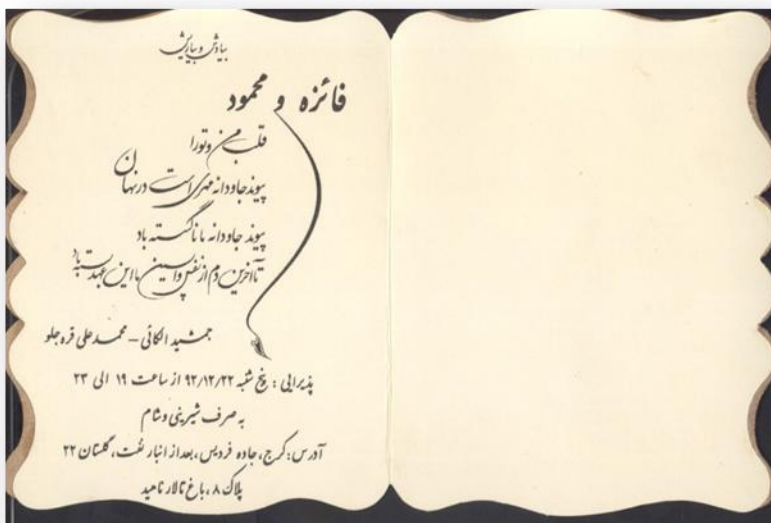 بیادش و بیاریش
فائزه و محمود
قلب من و تو را
پیوند جاودانه مهری است در نهان
پیوند جاودانه ما ناگسسته باد
تا آخرین دم از نفس واپسین ما این عهد بسته باد
جمشید الکائی - محمد علی قره جلو
پذیرایی : پنج شنبه ۹۲/۱۲/۲۲ از ساعت ۱۹ الی ۲۳
به صرف شیرینی و شام
آدرس : کرج، جاده فردیس، بعد از انبار نفت، گلستان ۲۲
پلاک ۸، باغ تالار ناهید